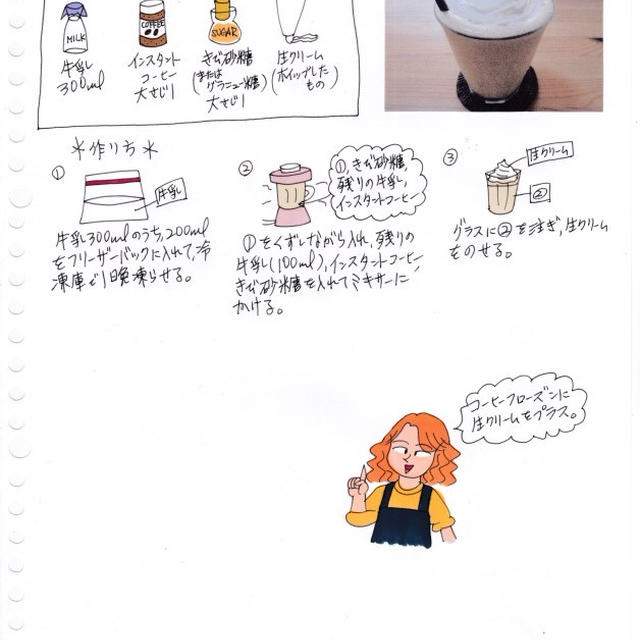 MILK
COFFEE
SUGAR
牛乳
300ml
インスタント
コーヒー
大さじ1
きび砂糖
(または
グラニュー糖)
大さじ1
生クリーム
(ホイップした
もの)
*作り方*
①
牛乳
牛乳300mlのうち,200ml
をフリーザーバックに入れて,冷
凍庫で1晩凍らせる。
②
①,きび砂糖,
残りの牛乳,
インスタントコーヒー
①をくずしながら入れ,残りの
牛乳(100ml),インスタントコーヒー,
きび砂糖を入れてミキサーに
かける。
③
生クリーム
②
グラスに②を注ぎ,生クリーム
をのせる。
コーヒーフローズンに
生クリームをプラス。